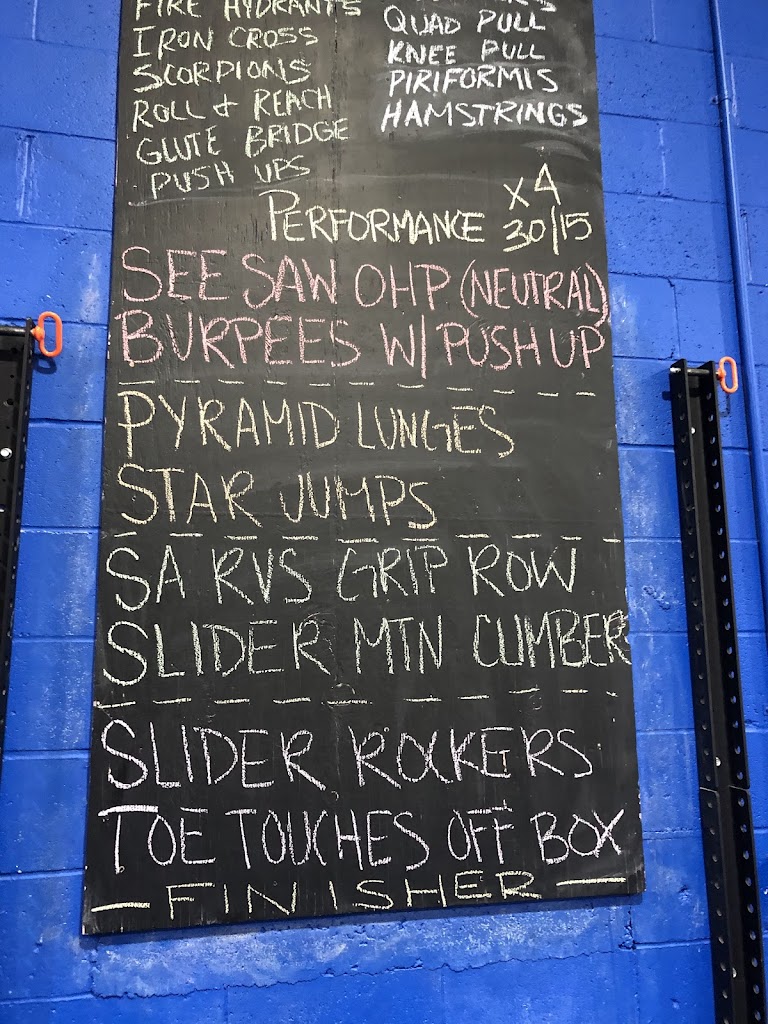 FIRE HYDRANTS
IRON CROSS
SCORPIONS
ROLL & REACH
GLUTE BRIDGE
PUSH UPS
QUAD PULL
KNEE PULL
PIRIFORMIS
HAMSTRINGS
X4
PERFORMANCE 30/15
SEE SAW OHP (NEUTRAL)
BURPEES W/ PUSH UP
PYRAMID LUNGES
STAR JUMPS
SA RVS GRIP ROW
SLIDER MTN CLIMBER
SLIDER ROCKERS
TOE TOUCHES OFF BOX
- FINISHER -